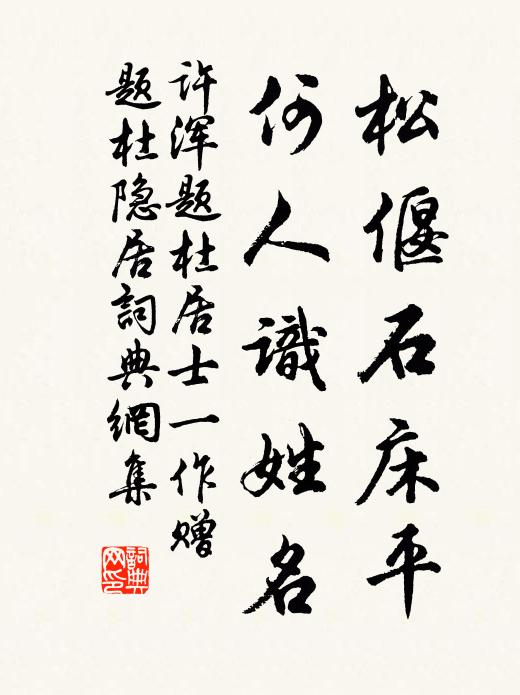 松偃石床平
何人識姓名
许浑题杜居士一作赠
题杜隐居詞典網集
詞典网印